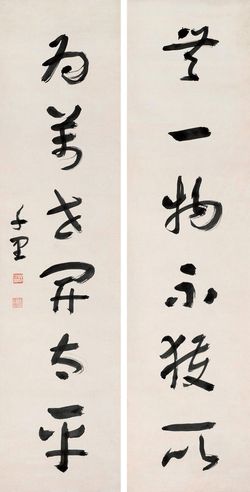 無一物不獲所
為萬世開太平
千里